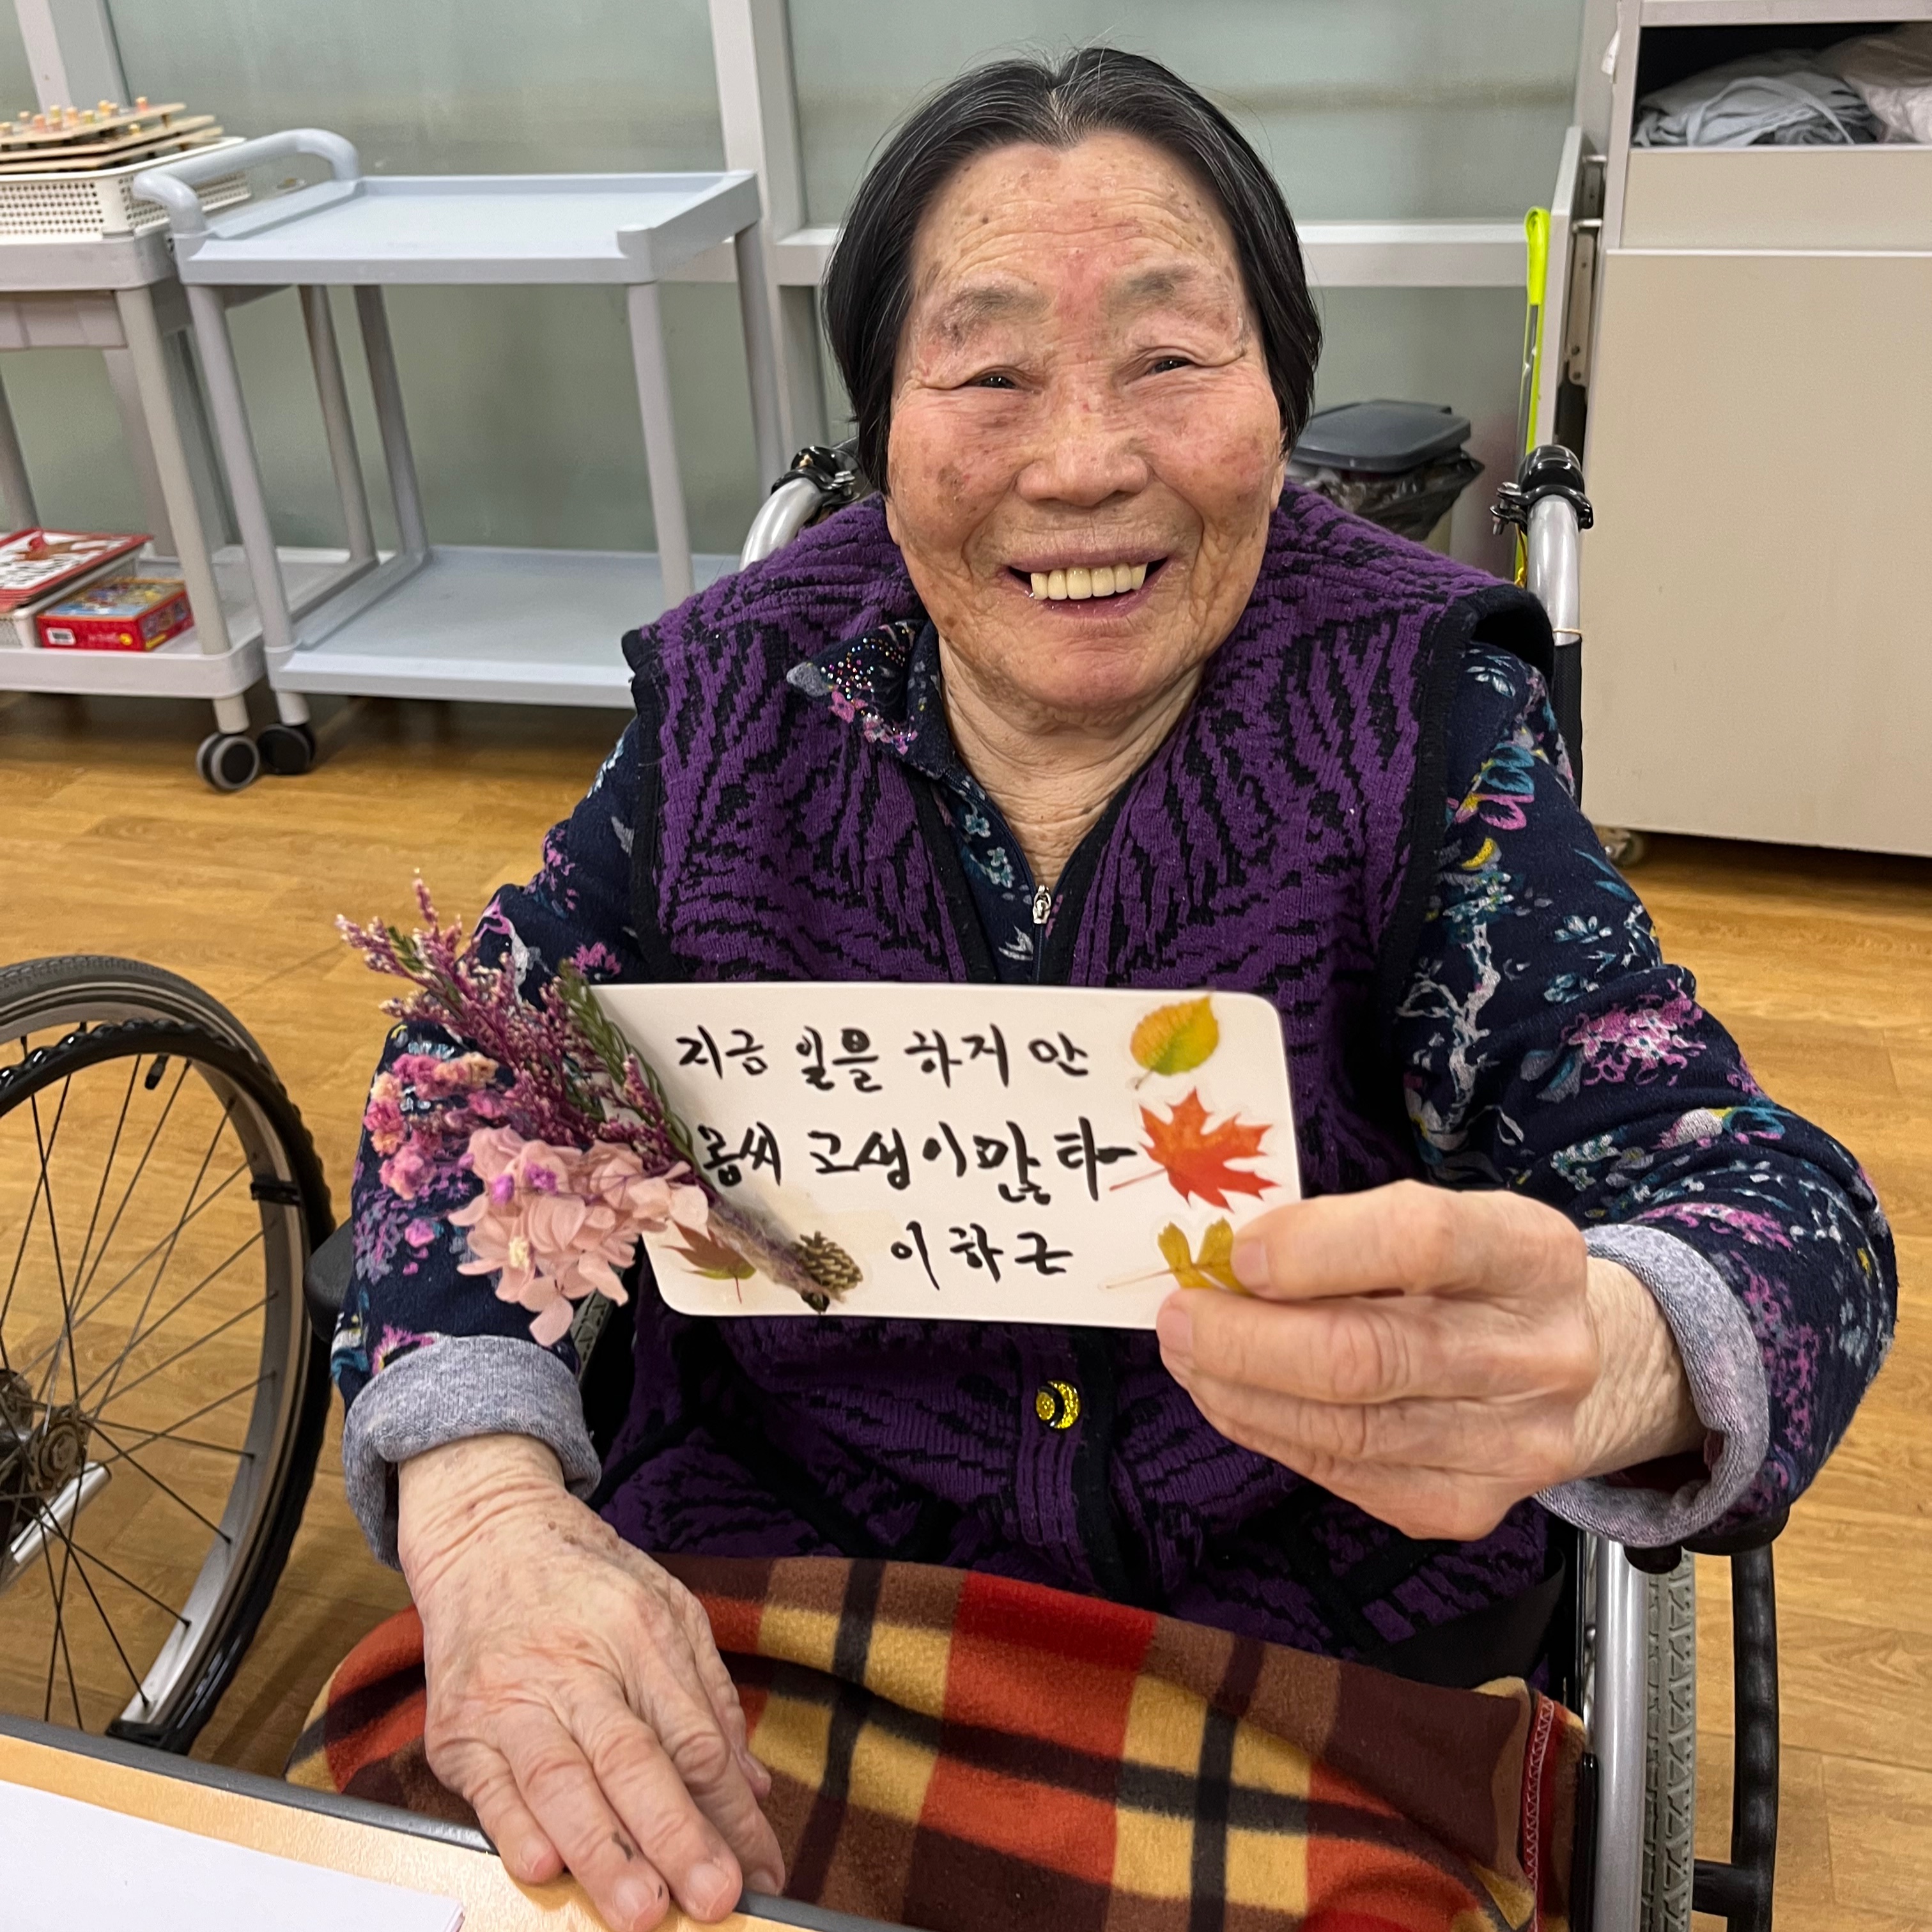 지금 일을 하지 안
몸씨 고생이 많타
이하근